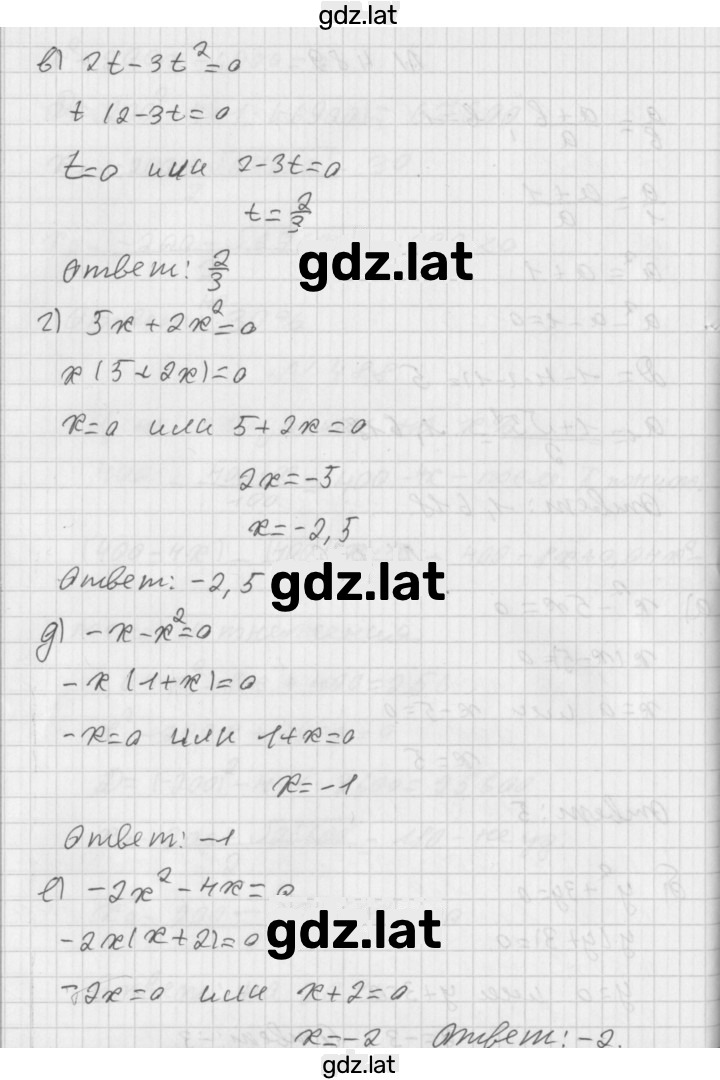 gdz.lat
в) 2t-3t²=0
t(2-3t=0
t=0 или 2-3t=0
t=2/3
Ответ: 2/3
gdz.lat
г) 5x+2x²=0
x(5+2x)=0
x=0 или 5+2x=0
2x=-5
x=-2,5
Ответ: -2,5
gdz.lat
д) -x-x²=0
-x(1+x)=0
-x=0 или 1+x=0
x=-1
Ответ: -1
е) -2x²-4x=0
-2x(x+2)=0
gdz.lat
-2x=0 или x+2=0
x=-2 Ответ: -2.
gdz.lat